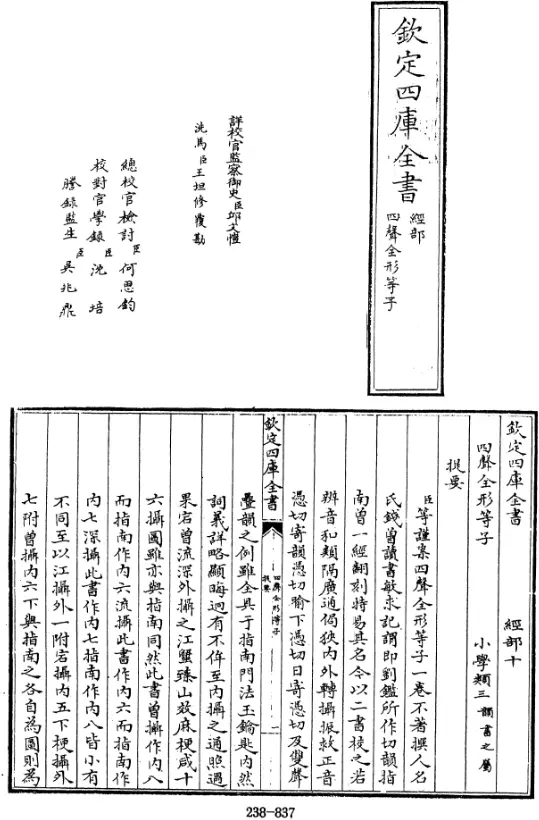 欽定四庫全書
經部
四聲全形等子
詳校官監察御史臣邱文愷
洗馬臣王坦修覆勘
總校官檢討臣何思鈞
校對官學錄臣沈培
謄錄監生臣吳兆鼎
欽定四庫全書
經部十
四聲全形等子
小學類三韻書之屬
提要
臣等謹案四聲全形等子一卷不著撰人名
氏錢曽讀書敏求記謂即劉鑑所作切韻指
南曽一經翻刻特易其名今以二書校之若
辨音和類隔廣通侷狹内外轉攝振救正音
憑切寄韻憑切喻下憑切日寄憑切及雙聲
欽定四庫全書
四聲全形等子
提要
一
疊韻之例雖全具于指南門法玉鑰匙内然
詞義詳略顯晦迥有不侔至内攝之通照遇
果宕曽流深外攝之江蟹臻山效麻梗咸十
六攝圖雖亦與指南同然此書曽攝作内八
而指南作内六流攝此書作内六而指南作
内七深攝此書作内七指南作内八皆小有
不同至以江攝外一附宕攝内五下梗攝外
七附曽攝内六下與指南之各自為圖則為
238-837